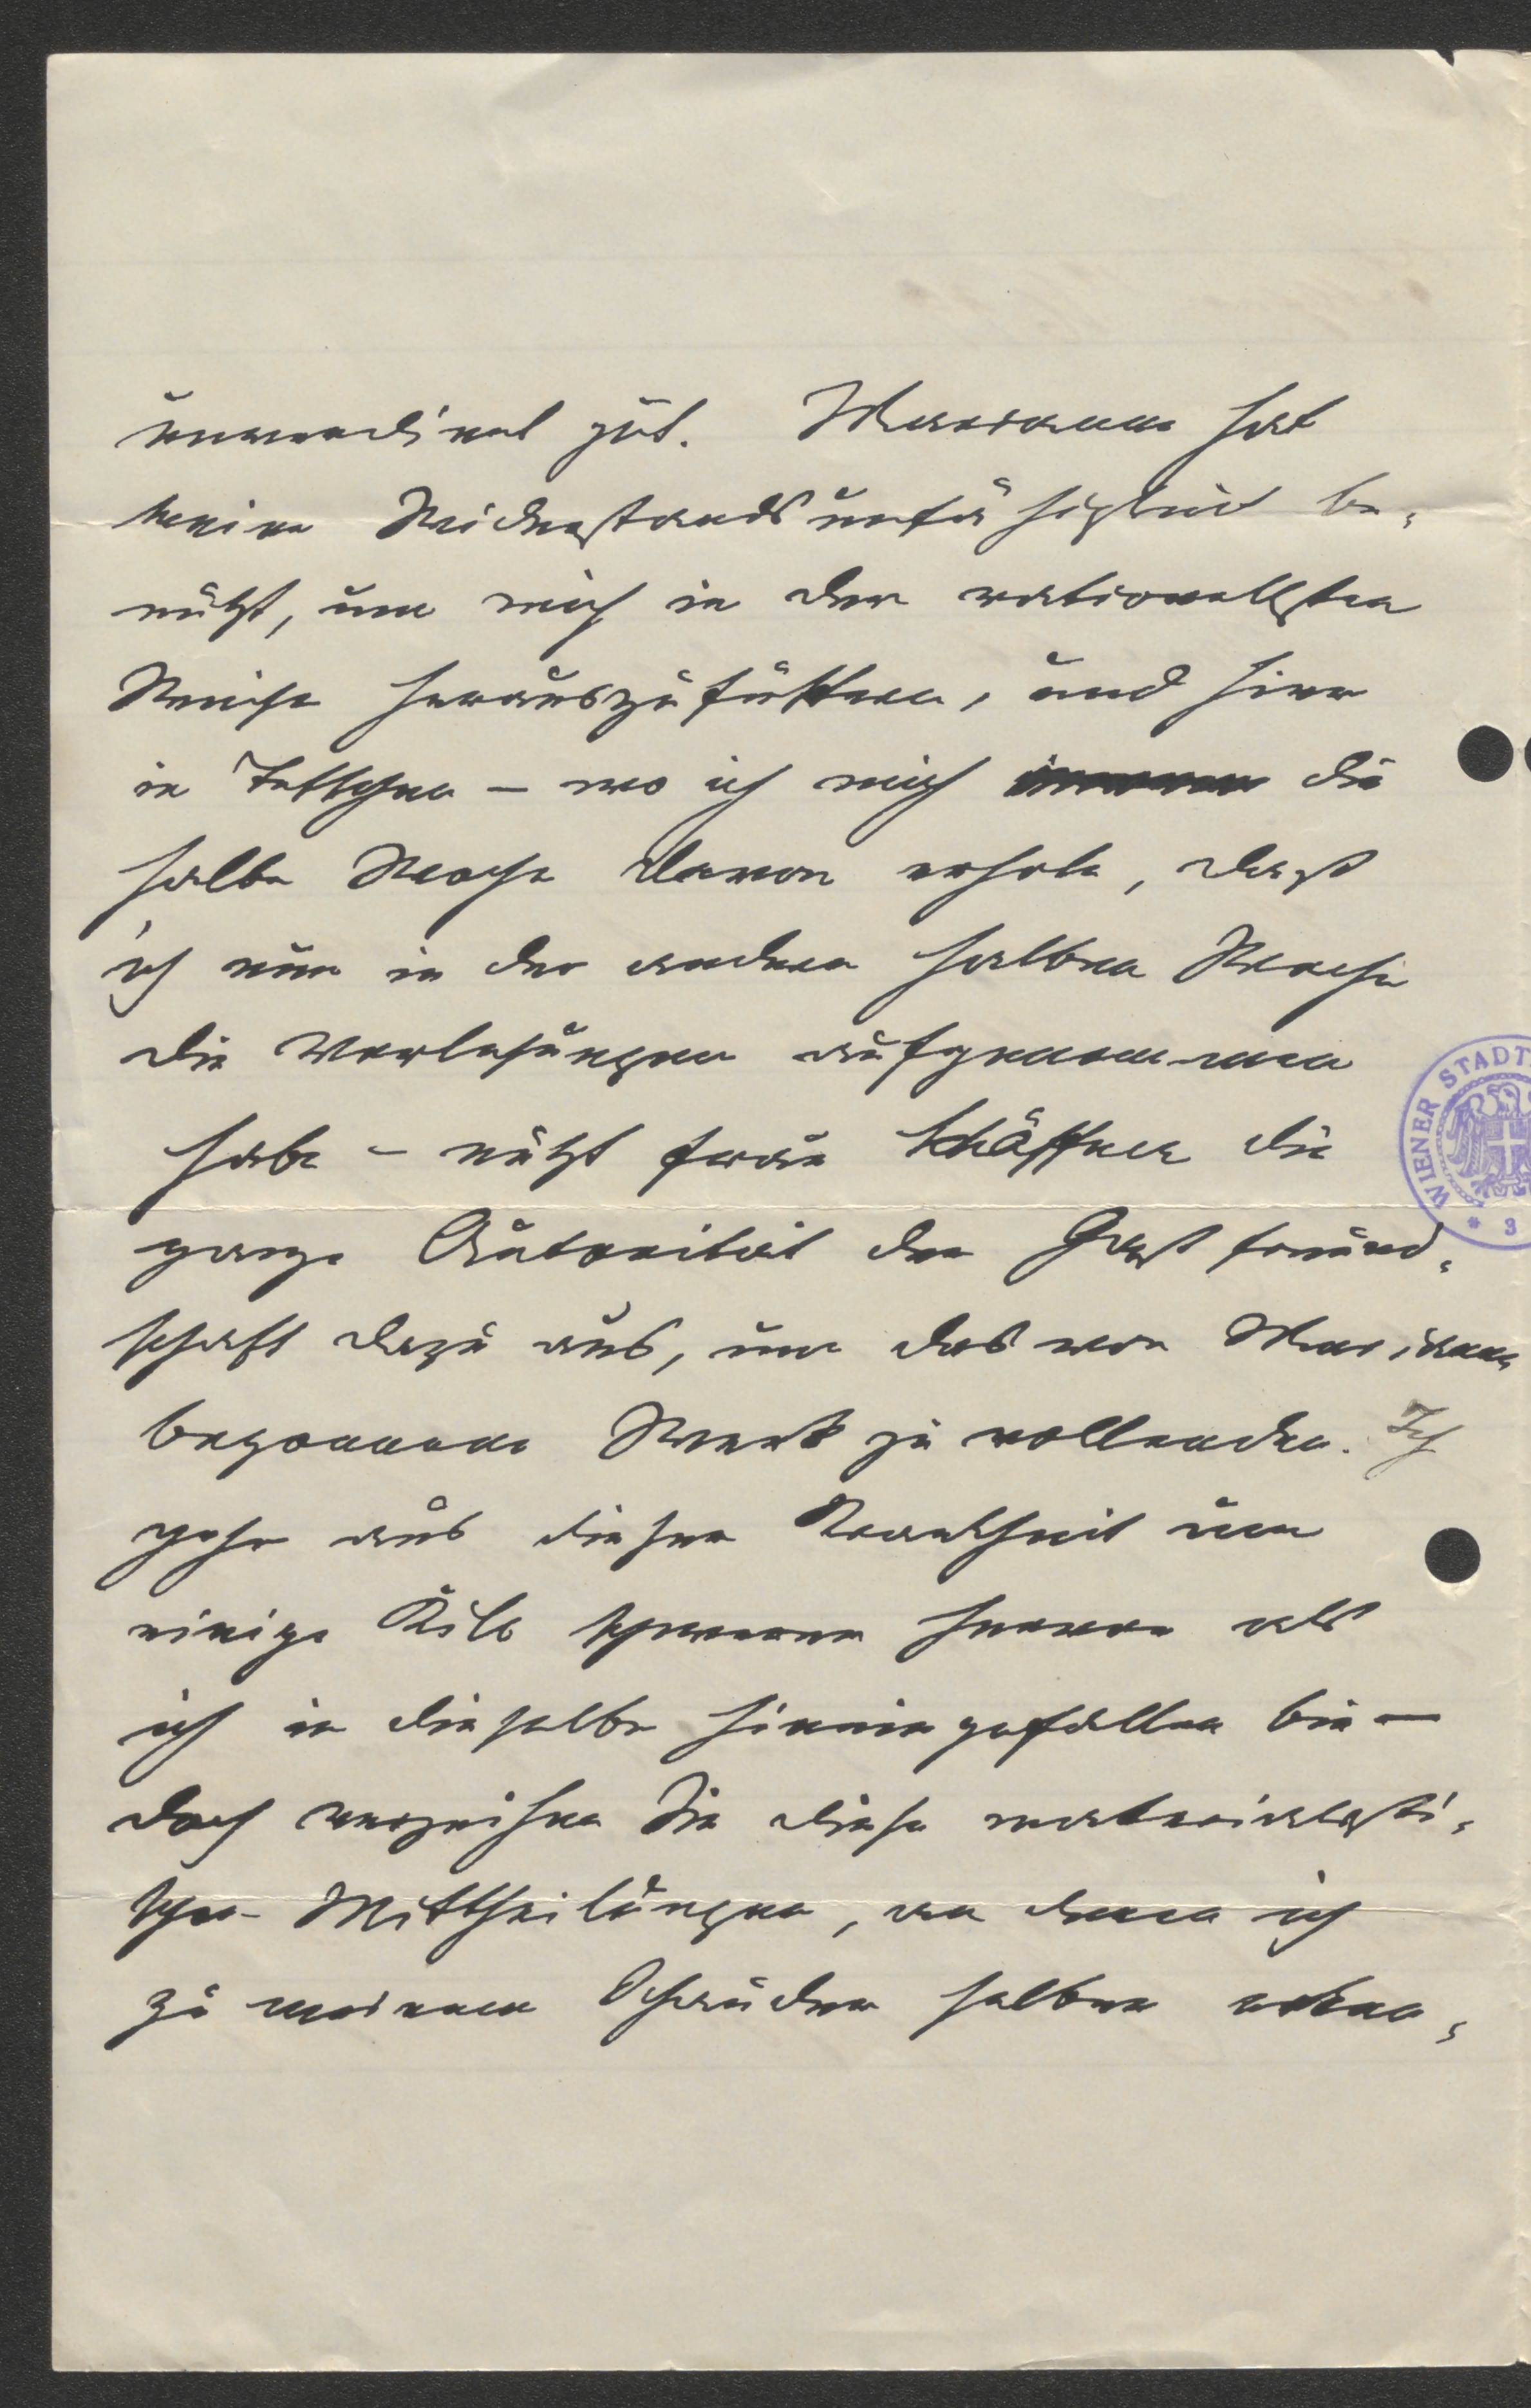 unverdient gut. Marianne hat
meine Widerstandsunfähigkeit be-
nützt, um mich in der rationellsten
Weise herauszufüttern, und hier
in Tetschen – wo ich mich immer die
halbe Woche davon erhole, dass
ich nun in der andern halben Woche
die Vorlesungen aufgenommen
habe – nützt Frau Schäffner die
ganze Autorität der Gastfreund-
schaft dazu aus, um das von Marianne
begonnene Werk zu vollenden. Ich
gehe aus dieser Krankheit um
einige Kilo schwerer hervor als
ich in dieselbe hineingefallen bin –
doch verzeihen Sie diese materialisti-
schen Mittheilungen, an denen ich
zu meinem Schauder selber erken-
WIENER STADT
* 3